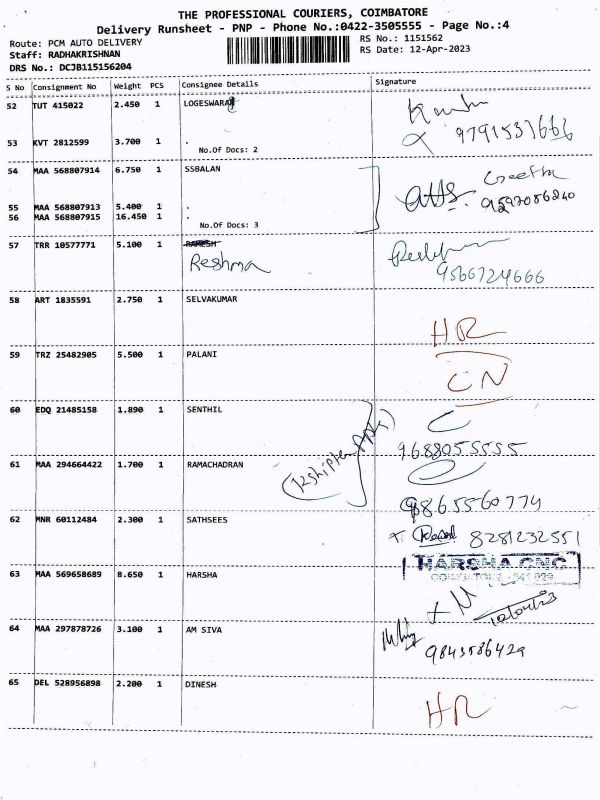 THE PROFESSIONAL COURIERS, COIMBATORE
Delivery Runsheet - PNP - Phone No.:0422-3505555 - Page No.:4
Route: PCM AUTO DELIVERY
RS No.: 1151562
Staff: RADHAKRISHNAN
RS Date: 12-Apr-2023
DRS No.: DCJB115156204
S No Consignment No Weight PCS Consignee Details Signature
52 TUT 415022 2.450 1 LOGESWARAN
53 KVT 2812599 3.700 1 . 9791537666
No.Of Docs: 2
54 MAA 568807914 6.750 1 SSBALAN Geetha
55 MAA 568807913 5.400 1 . 9597086240
56 MAA 568807915 16.450 1 .
No.Of Docs: 3
57 TRR 10577771 5.100 1 RAMESH
Reshma
9566724666
58 ART 1835591 2.750 1 SELVAKUMAR
HR
59 TRZ 25482905 5.500 1 PALANI
CN
60 EDQ 21485158 1.890 1 SENTHIL
9688055555
61 MAA 294664422 1.700 1 RAMACHADRAN
9865560774
62 MNR 60112484 2.300 1 SATHSEES
8281232551
HARSHA CNC
63 MAA 569658689 8.650 1 HARSHA
64 MAA 297878726 3.100 1 AM SIVA
9843586429
65 DEL 528956898 2.200 1 DINESH
HR